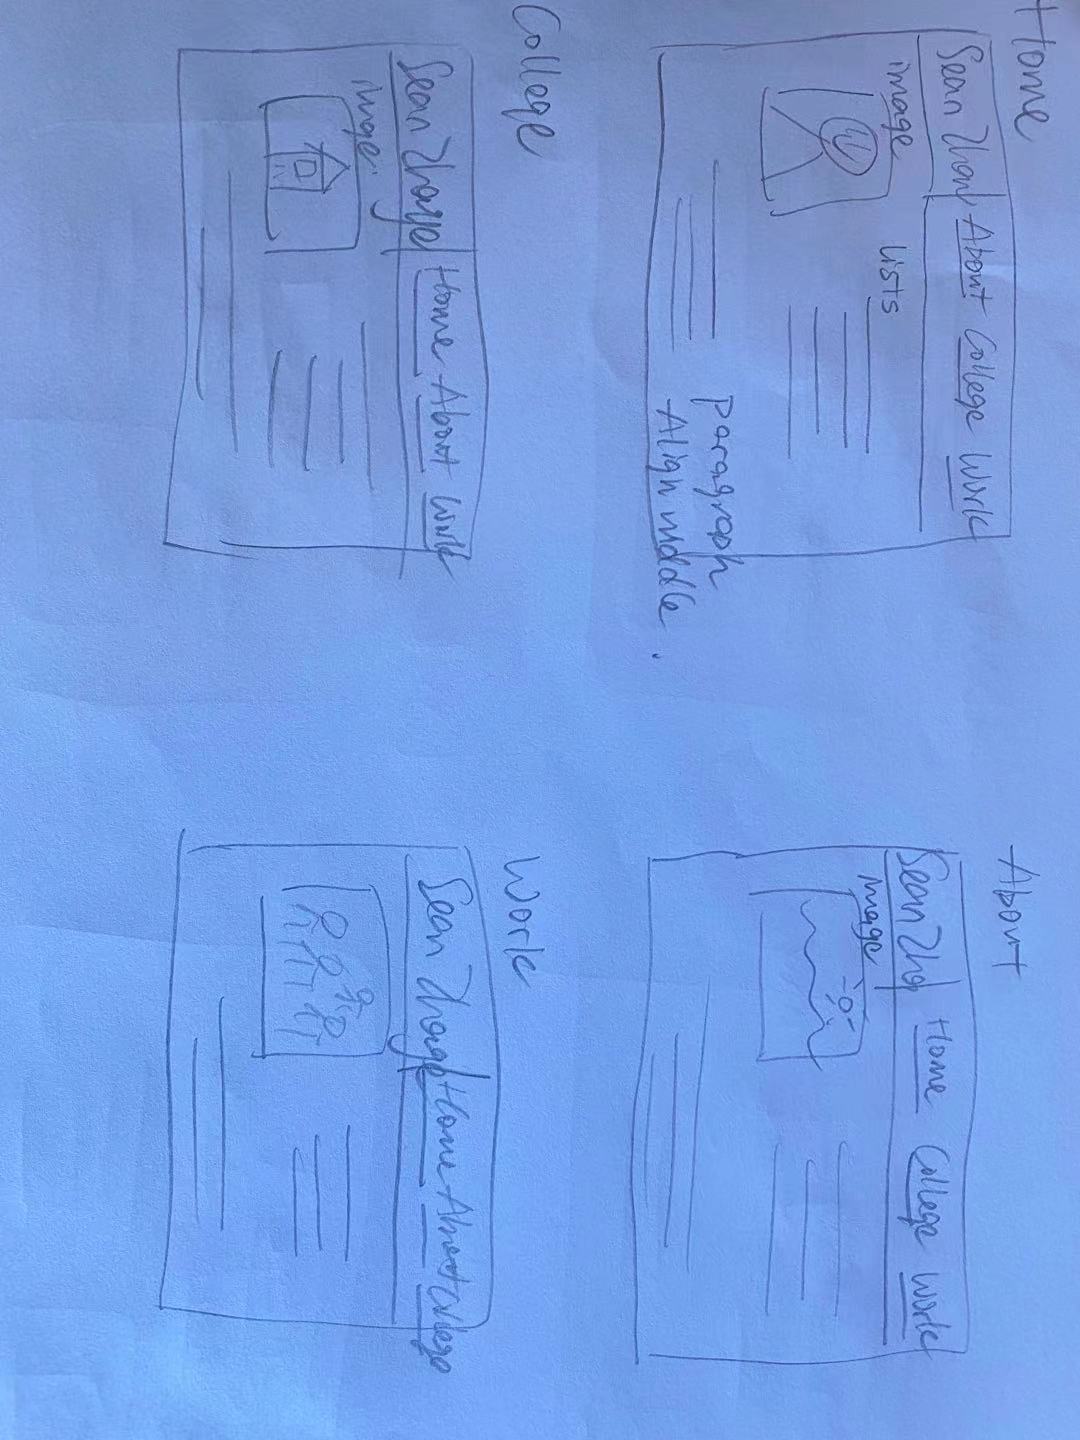 Home
Sean Zhang About College Work
image
Lists
paragraph
Align middle.
About
Sean Zha Home College Work
image
College
Sean Zhang Home About Work
image.
Work
Sean Zhang Home About College